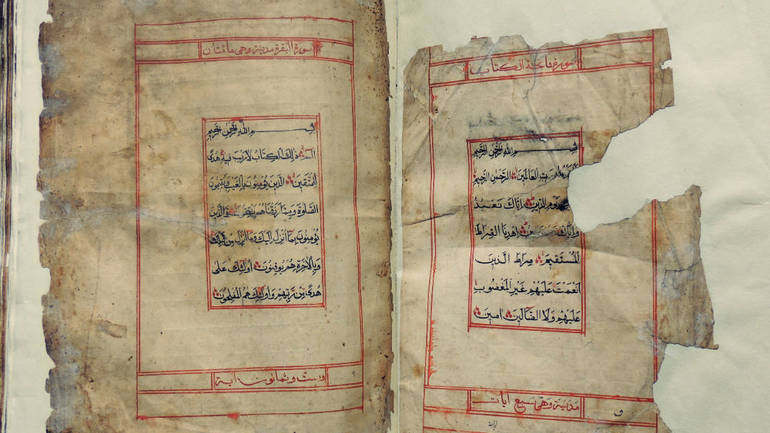 سورة فاتحة الكتاب
بسم الله الرحمن الرحيم
رب العالمين الرحمن الرحيم
يوم الدين اياك نعبد
واياك اهدنا الصراط
المستقيم صراط الذين
انعمت عليهم غير المغضوب
عليهم ولا الضالين امين
مدنية وهي سبع ايات
سورة البقرة مدنية وهي مائتان
بسم الله الرحمن الرحيم
الم ذلك الكتاب لا ريب فيه هدى
للمتقين الذين يؤمنون بالغيب ويقيمون
الصلوة ومما رزقناهم ينفقون والذين
يؤمنون بما انزل اليك وما انزل من قبلك
وبالاخرة هم يوقنون اولئك على
هدى من ربهم واولئك هم المفلحون
وست وثمانون اية